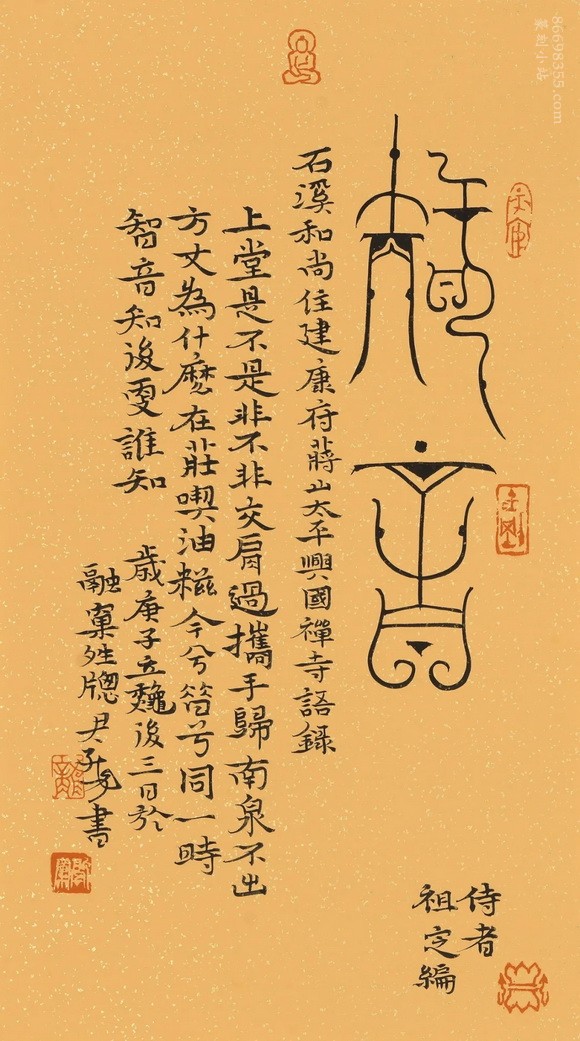 智音
石溪和尚住建康府蔣山太平興國禪寺語錄
侍者
祖定編
上堂是不是非不非交肩過攜手歸南泉不出
方丈為什麼在莊喫油糍今兮兮同一時
智音知後更誰知
歲庚子立龝後三日於
融窠牕尹書
86698355.com
篆刻小站